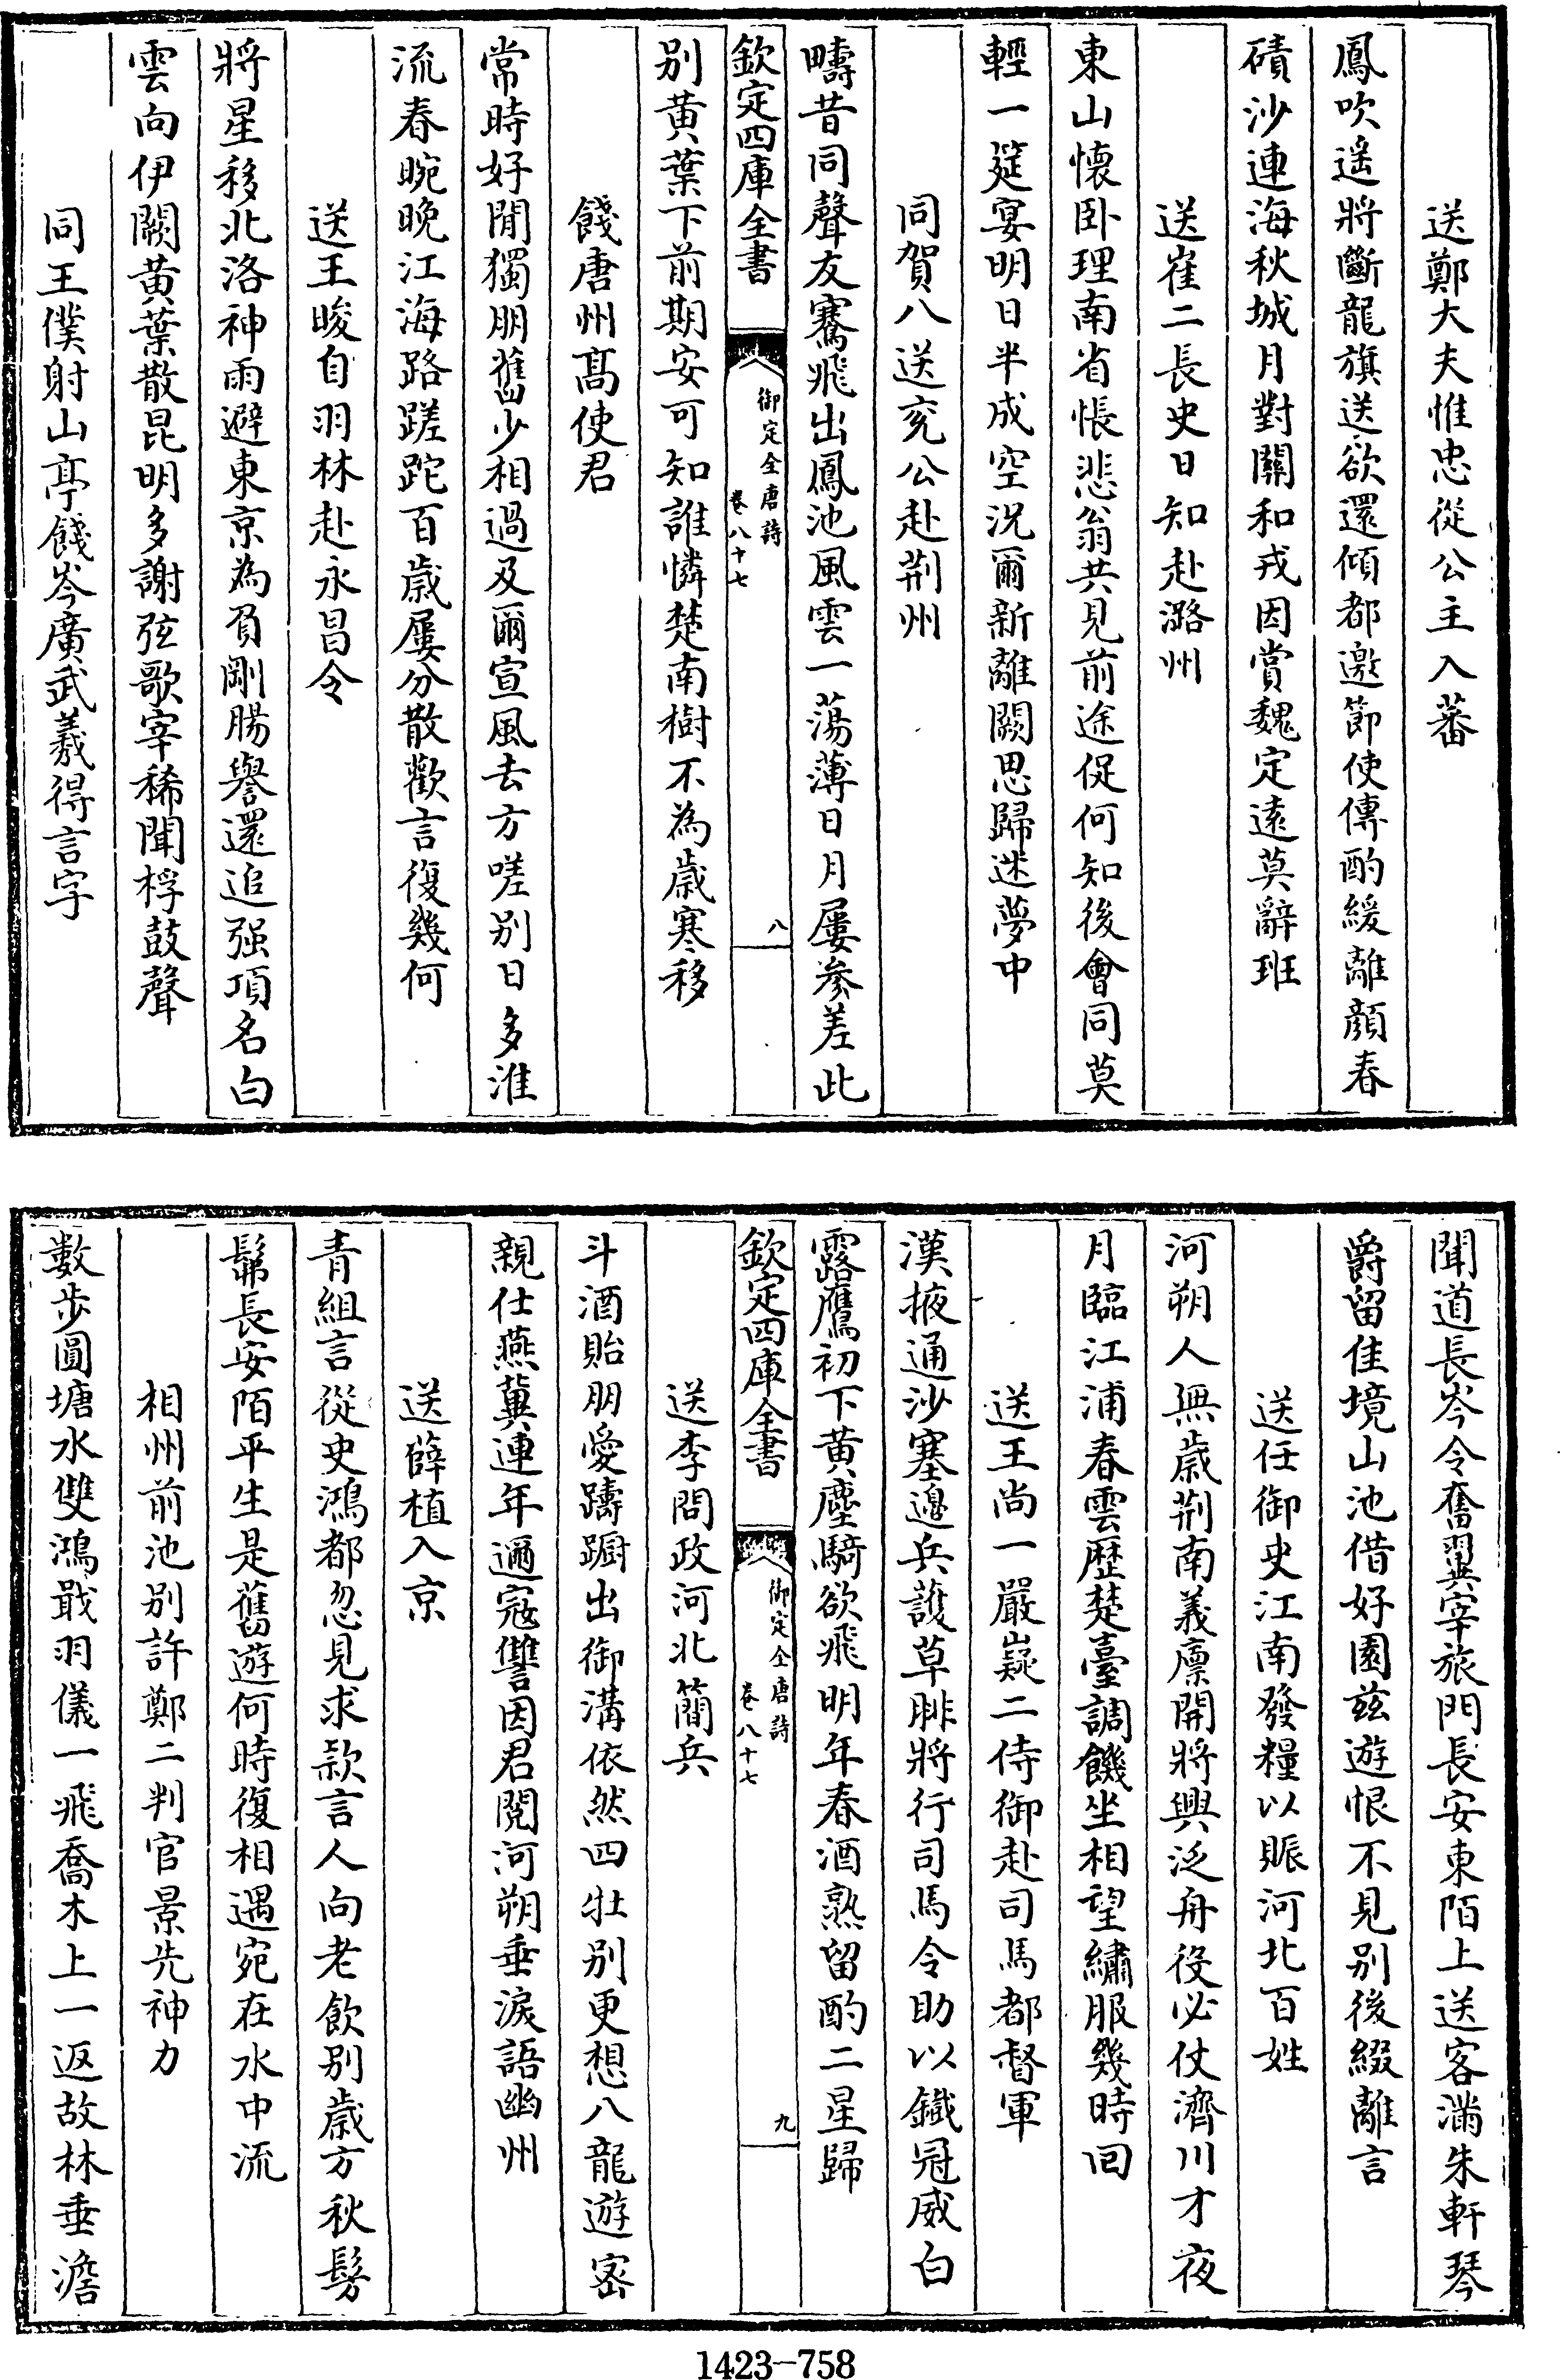 送鄭大夫惟忠從公主入蕃
鳳吹遥將斷龍旗送欲還傾都邀節使傳酌緩離顔春
磧沙連海秋城月對關和戎因賞魏定遠莫辭班
送崔二長史日知赴潞州
東山懷卧理南省悵悲翁共見前途促何知後會同莫
輕一筵宴明日半成空況爾新離闕思歸迷夢中
同賀八送兖公赴荆州
疇昔同聲友騫飛出鳳池風雲一蕩薄日月屢參差此
欽定四庫全書
御定全唐詩
卷八十七
八
别黄葉下前期安可知誰憐楚南樹不為歲寒移
餞唐州髙使君
常時好閒獨朋舊少相過及爾宣風去方嗟别日多淮
流春晼晚江海路蹉跎百歲屢分散歡言復幾何
送王晙自羽林赴永昌令
將星移北洛神雨避東京為負剛腸譽還追强項名白
雲向伊闕黄葉散昆明多謝弦歌宰稀聞桴鼓聲
同王僕射山亭餞岑廣武羲得言字
聞道長岑令奮翼宰旅門長安東陌上送客滿朱軒琴
爵留佳境山池借好園兹遊恨不見别後綴離言
送任御史江南發糧以賑河北百姓
河朔人無歲荆南義廪開將興泛舟役必仗濟川才夜
月臨江浦春雲歴楚臺調饑坐相望繡服幾時回
送王尚一嚴嶷二侍御赴司馬都督軍
漢掖通沙塞邊兵護草腓將行司馬令助以鐵冠威白
露鷹初下黄塵騎欲飛明年春酒熟留酌二星歸
欽定四庫全書
御定全唐詩
卷八十七
九
送李問政河北簡兵
斗酒貽朋愛躊躕出御溝依然四牡别更想八龍遊密
親仕燕冀連年邇寇讐因君閲河朔垂淚語幽州
送薛植入京
青組言從史鴻都忽見求欵言人向老飲别歲方秋髣
髴長安陌平生是舊遊何時復相遇宛在水中流
相州前池别許鄭二判官景先神力
數步圓塘水雙鴻戢羽儀一飛喬木上一返故林垂澹
1423-758